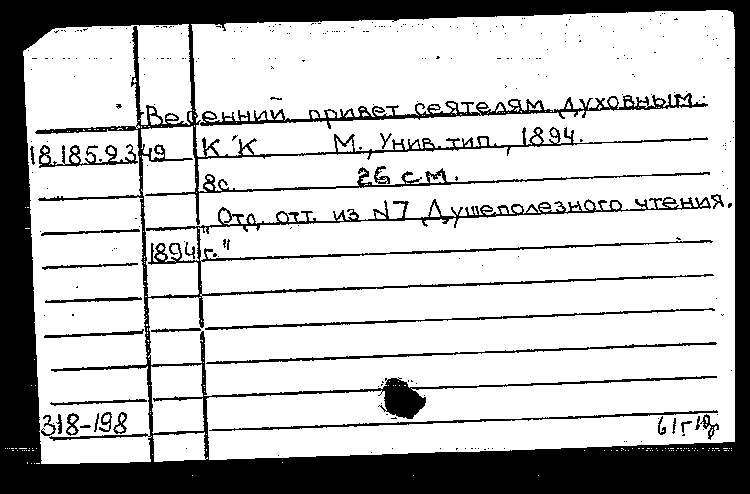 Весенний привет сеятелям духовным.
18.185.2.349 К.К. М., Унив. тип., 1894.
8с. 26 см.
"Отд. отт. из N7 Душеполезного чтения.
1894 г."
318-198 61г